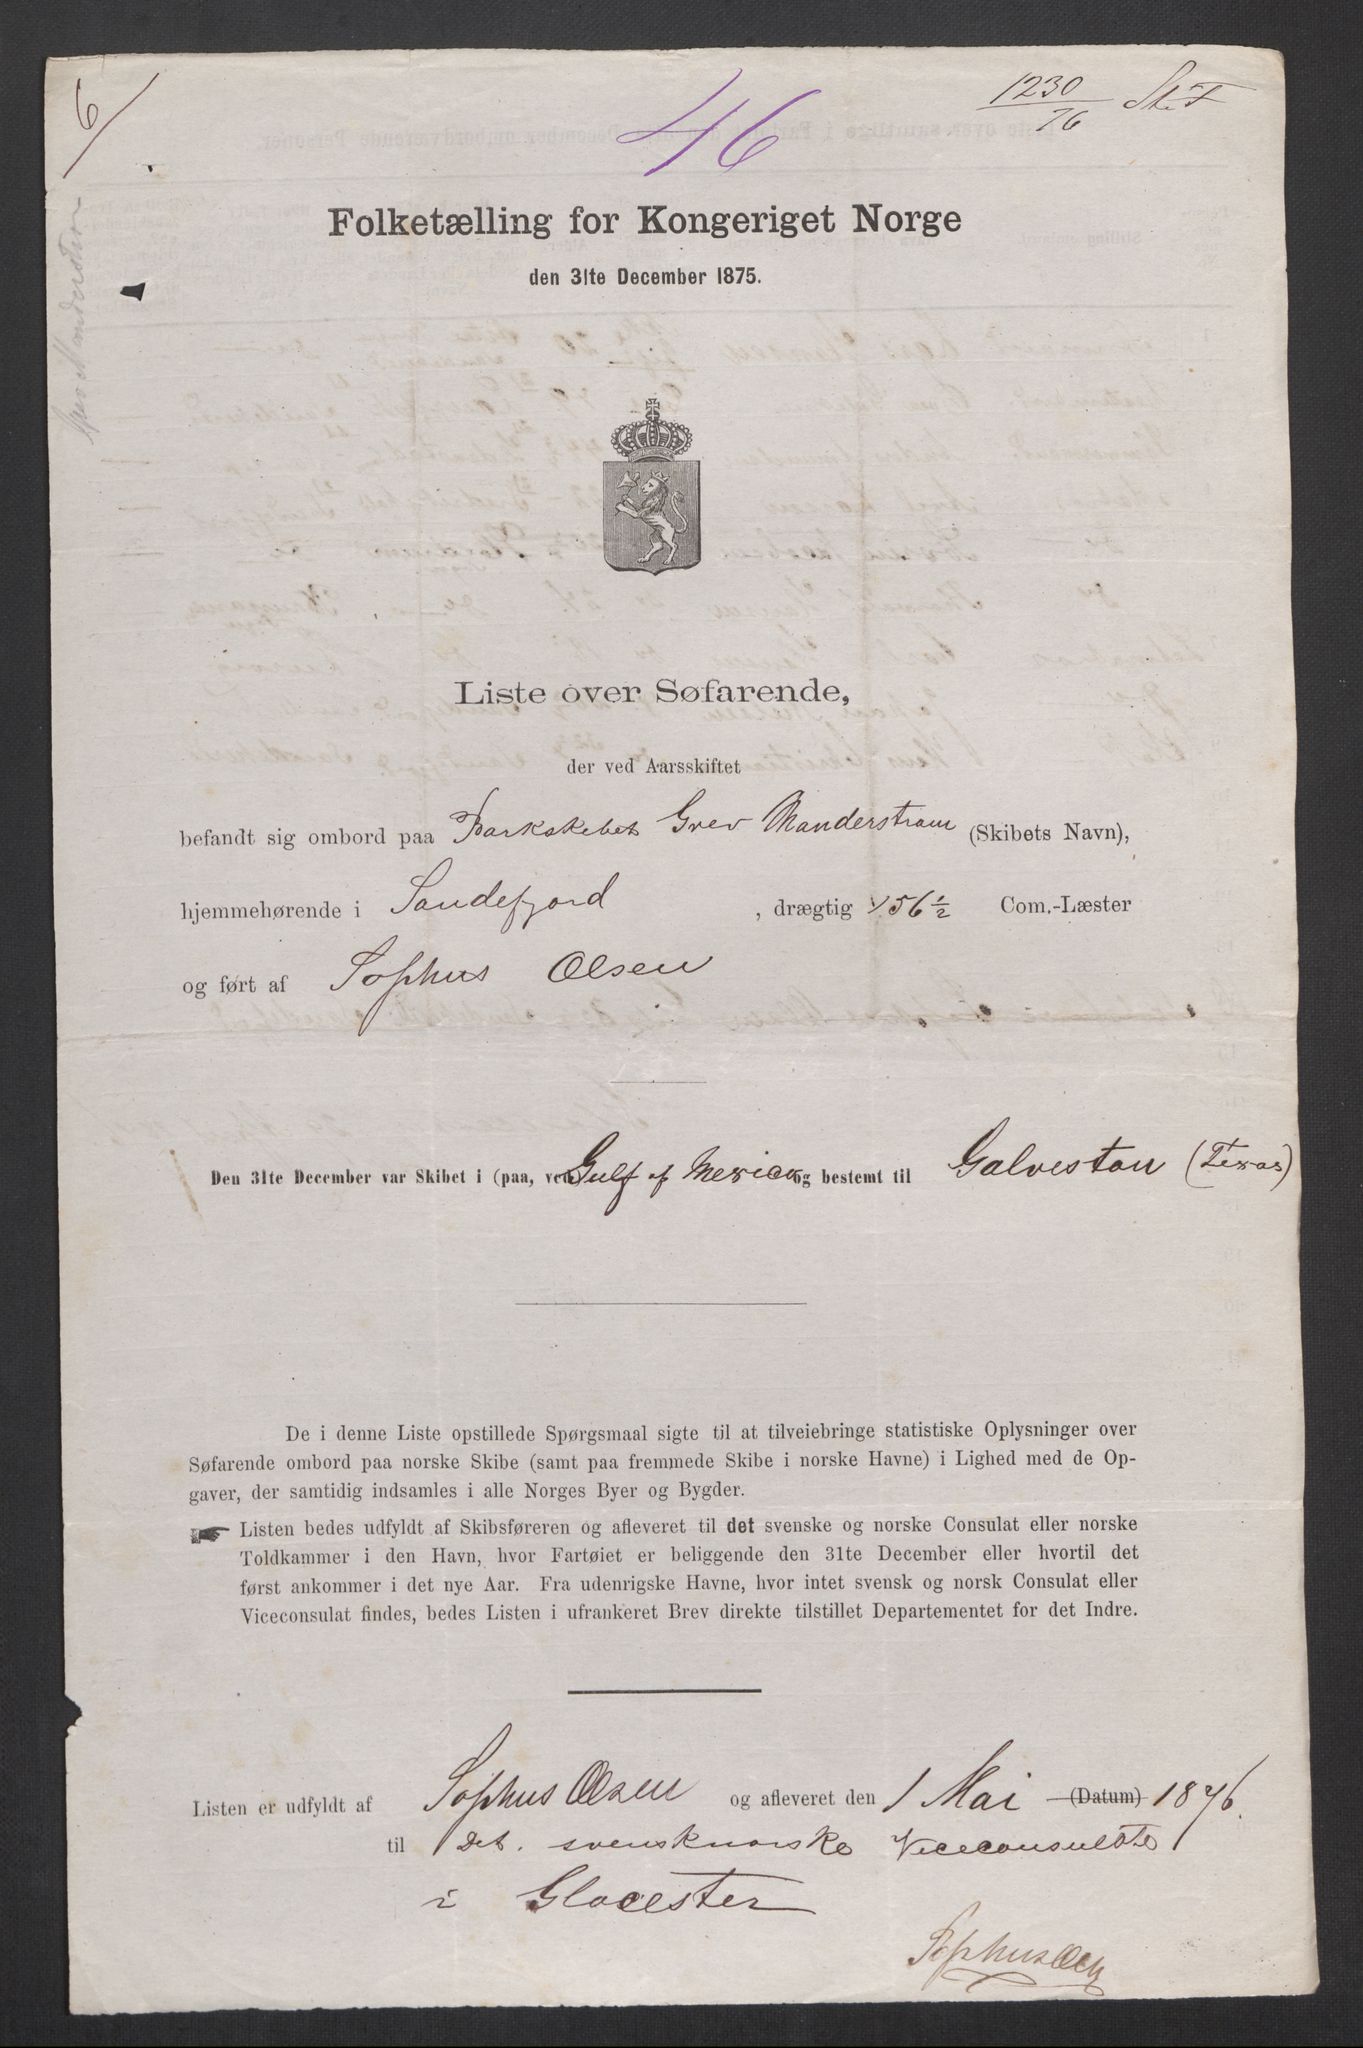 6/
46
1230/76 St. T
Grev Manderstrøm
Folketælling for Kongeriget Norge
den 31te December 1875.
Liste over Søfarende,
der ved Aarsskiftet
befandt sig ombord paa Barkskibet Grev Manderstrøm (Skibets Navn),
hjemmehørende i Sandefjord , drægtig 156 1/2 Com.-Læster
og ført af Sophus Olsen
Den 31te December var Skibet i (paa, ved) Gulf of Mexico og bestemt til Galveston (Texas)
De i denne Liste opstillede Spørgsmaal sigte til at tilveiebringe statistiske Oplysninger over
Søfarende ombord paa norske Skibe (samt paa fremmede Skibe i norske Havne) i Lighed med de Op-
gaver, der samtidig indsamles i alle Norges Byer og Bygder.
Listen bedes udfyldt af Skibsføreren og afleveret til det svenske og norske Consulat eller norske
Toldkammer i den Havn, hvor Fartøiet er beliggende den 31te December eller hvortil det
først ankommer i det nye Aar. Fra udenrigske Havne, hvor intet svensk og norsk Consulat eller
Viceconsulat findes, bedes Listen i ufrankeret Brev direkte tilstillet Departementet for det Indre.
Listen er udfyldt af Sophus Olsen og afleveret den 1 Mai (Datum) 1876.
til Det. svensknorske Viceconsulate
i Glocester
Sophus Olsen